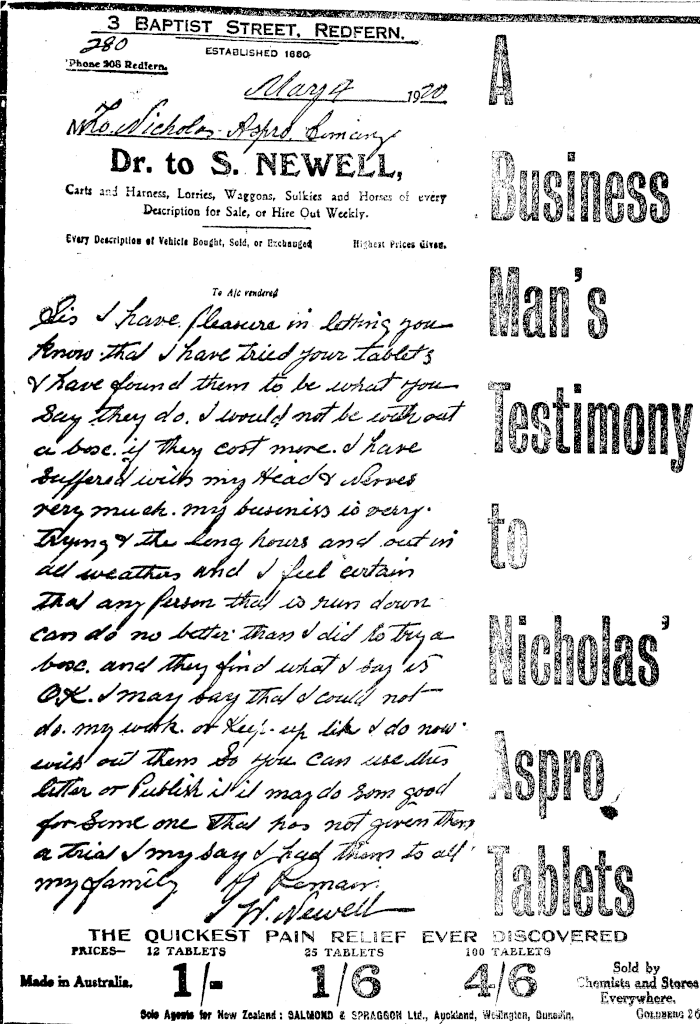 3 BAPTIST STREET, REDFERN.
280
ESTABLISHED 1880
'Phone 208 Redfern.
May 9 1920
M To. Nicholas Aspro. Comany
Dr. to S. NEWELL,
Carts and Harness, Lorries, Waggons, Sulkies and Horses of every
Description for Sale, or Hire Out Weekly.
Every Description of Vehicle Bought, Sold, or Exchanged Highest Prices Given.
To A/c rendered
Sir I have pleasure in letting you
know that I have tried your tablets
& have found them to be what you
say they do. I would not be with out
a box. if they cost more. I have
suffered with my Head & Nerves
very much. my business is very.
trying & the long hours and out in
all weathers and I feel certain
that any person that is run down
can do no better than I did to try a
box. and they find what I say is
O.K. I may say that I could not
do. my work. or Keep. up like I do now.
with out them So you can use this
letter or Publish it it may do som good
for some one that has not given them
a trial I my say I had them to all
my family I Remain
W. Newell
A
Business
Man's
Testimony
to
Nicholas'
Aspro
Tablets
THE QUICKEST PAIN RELIEF EVER DISCOVERED
PRICES— 12 TABLETS 25 TABLETS 100 TABLETS
Made in Australia. 1/- 1/6 4/6 Sold by
Chemists and Stores
Everywhere.
Sole Agents for New Zealand: SALMOND & SPRAGGON Ltd., Auckland, Wellington, Dunedin. GOLDBERG 26